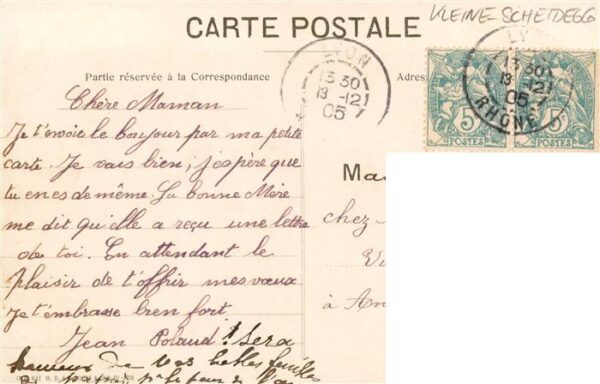 KLEINE SCHEIDEGG
CARTE POSTALE
Partie réservée à la Correspondance
Adres
LYON
13 30
13 -12
05
LYON
13 30
13 -12
05
RHÔNE
5c
POSTES
5c
POSTES
Chère Maman
Je t'envoie le bonjour par ma petite
carte. Je vais bien, j'espère que
tu en es de même. La bonne Mère
me dit qu'elle a reçu une lettre
de toi. En attendant le
plaisir de t'offrir mes vœux
Je t'embrasse bien fort
Jean
sera
de vos belles
Mad
chez
à An